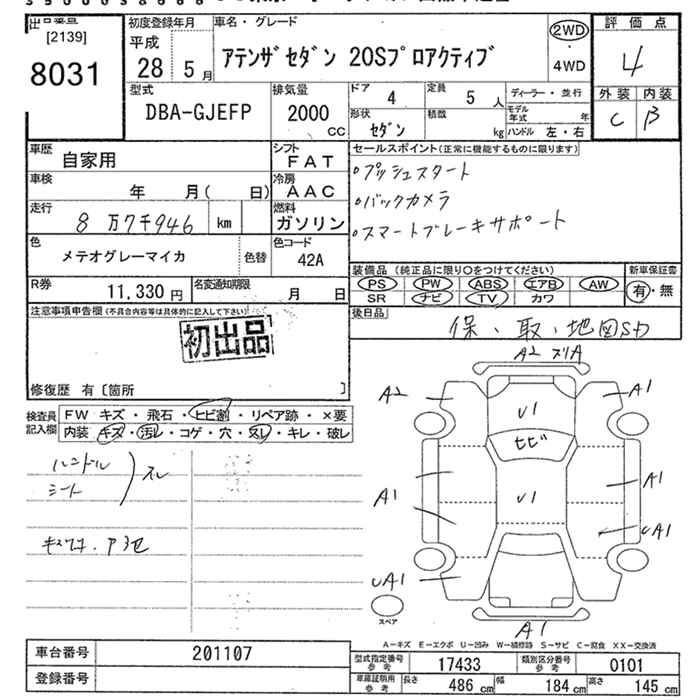 [2139]
8031
初度登録年月
平成
28 5月
車名・グレード
アテンザセダン 20Sプロアクティブ
2WD
・
4WD
評価点
4
外装 内装
C B
型式
DBA-GJEFP
排気量
2000
CC
ドア 4
定員 5人
形状 セダン
積載 kg
ディーラー・並行
モデル年式 年
ハンドル 左・右
車歴
自家用
シフト
FAT
車検
年 月( 日)
冷房
AAC
走行
8万7千946 km
燃料
ガソリン
色
メテオグレーマイカ
色替
色コード
42A
R券
11,330円
名変通知期限
月 日
セールスポイント(正常に機能するものに限ります)
○プッシュスタート
○バックカメラ
○スマートブレーキサポート
装備品(純正品に限り○をつけてください)
PS PW ABS エアB AW
SR ナビ TV カワ
新車保証書
有・無
後日品
保、取、地図SD
注意事項申告欄(不具合内容等は具体的に記入して下さい)
初出品
修復歴 有〔箇所 〕
検査員記入欄
FW キズ・飛石・ヒビ割・リペア跡・×要
内装 キズ・汚レ・コゲ・穴・スレ・キレ・破レ
ハンドル
シート
スレ
A2 スリA
A2
A1
U1
ヒビ
U1
A1
A1
UA1
UA1
スペア
A1
A-キズ E-エクボ U-凹み W-補修跡 S-サビ C-腐食 XX-交換済
車台番号 201107
登録番号
型式指定番号 参考 17433
類別区分番号 参考 0101
車庫証明用 参考 長さ 486cm 幅 184cm 高さ 145cm